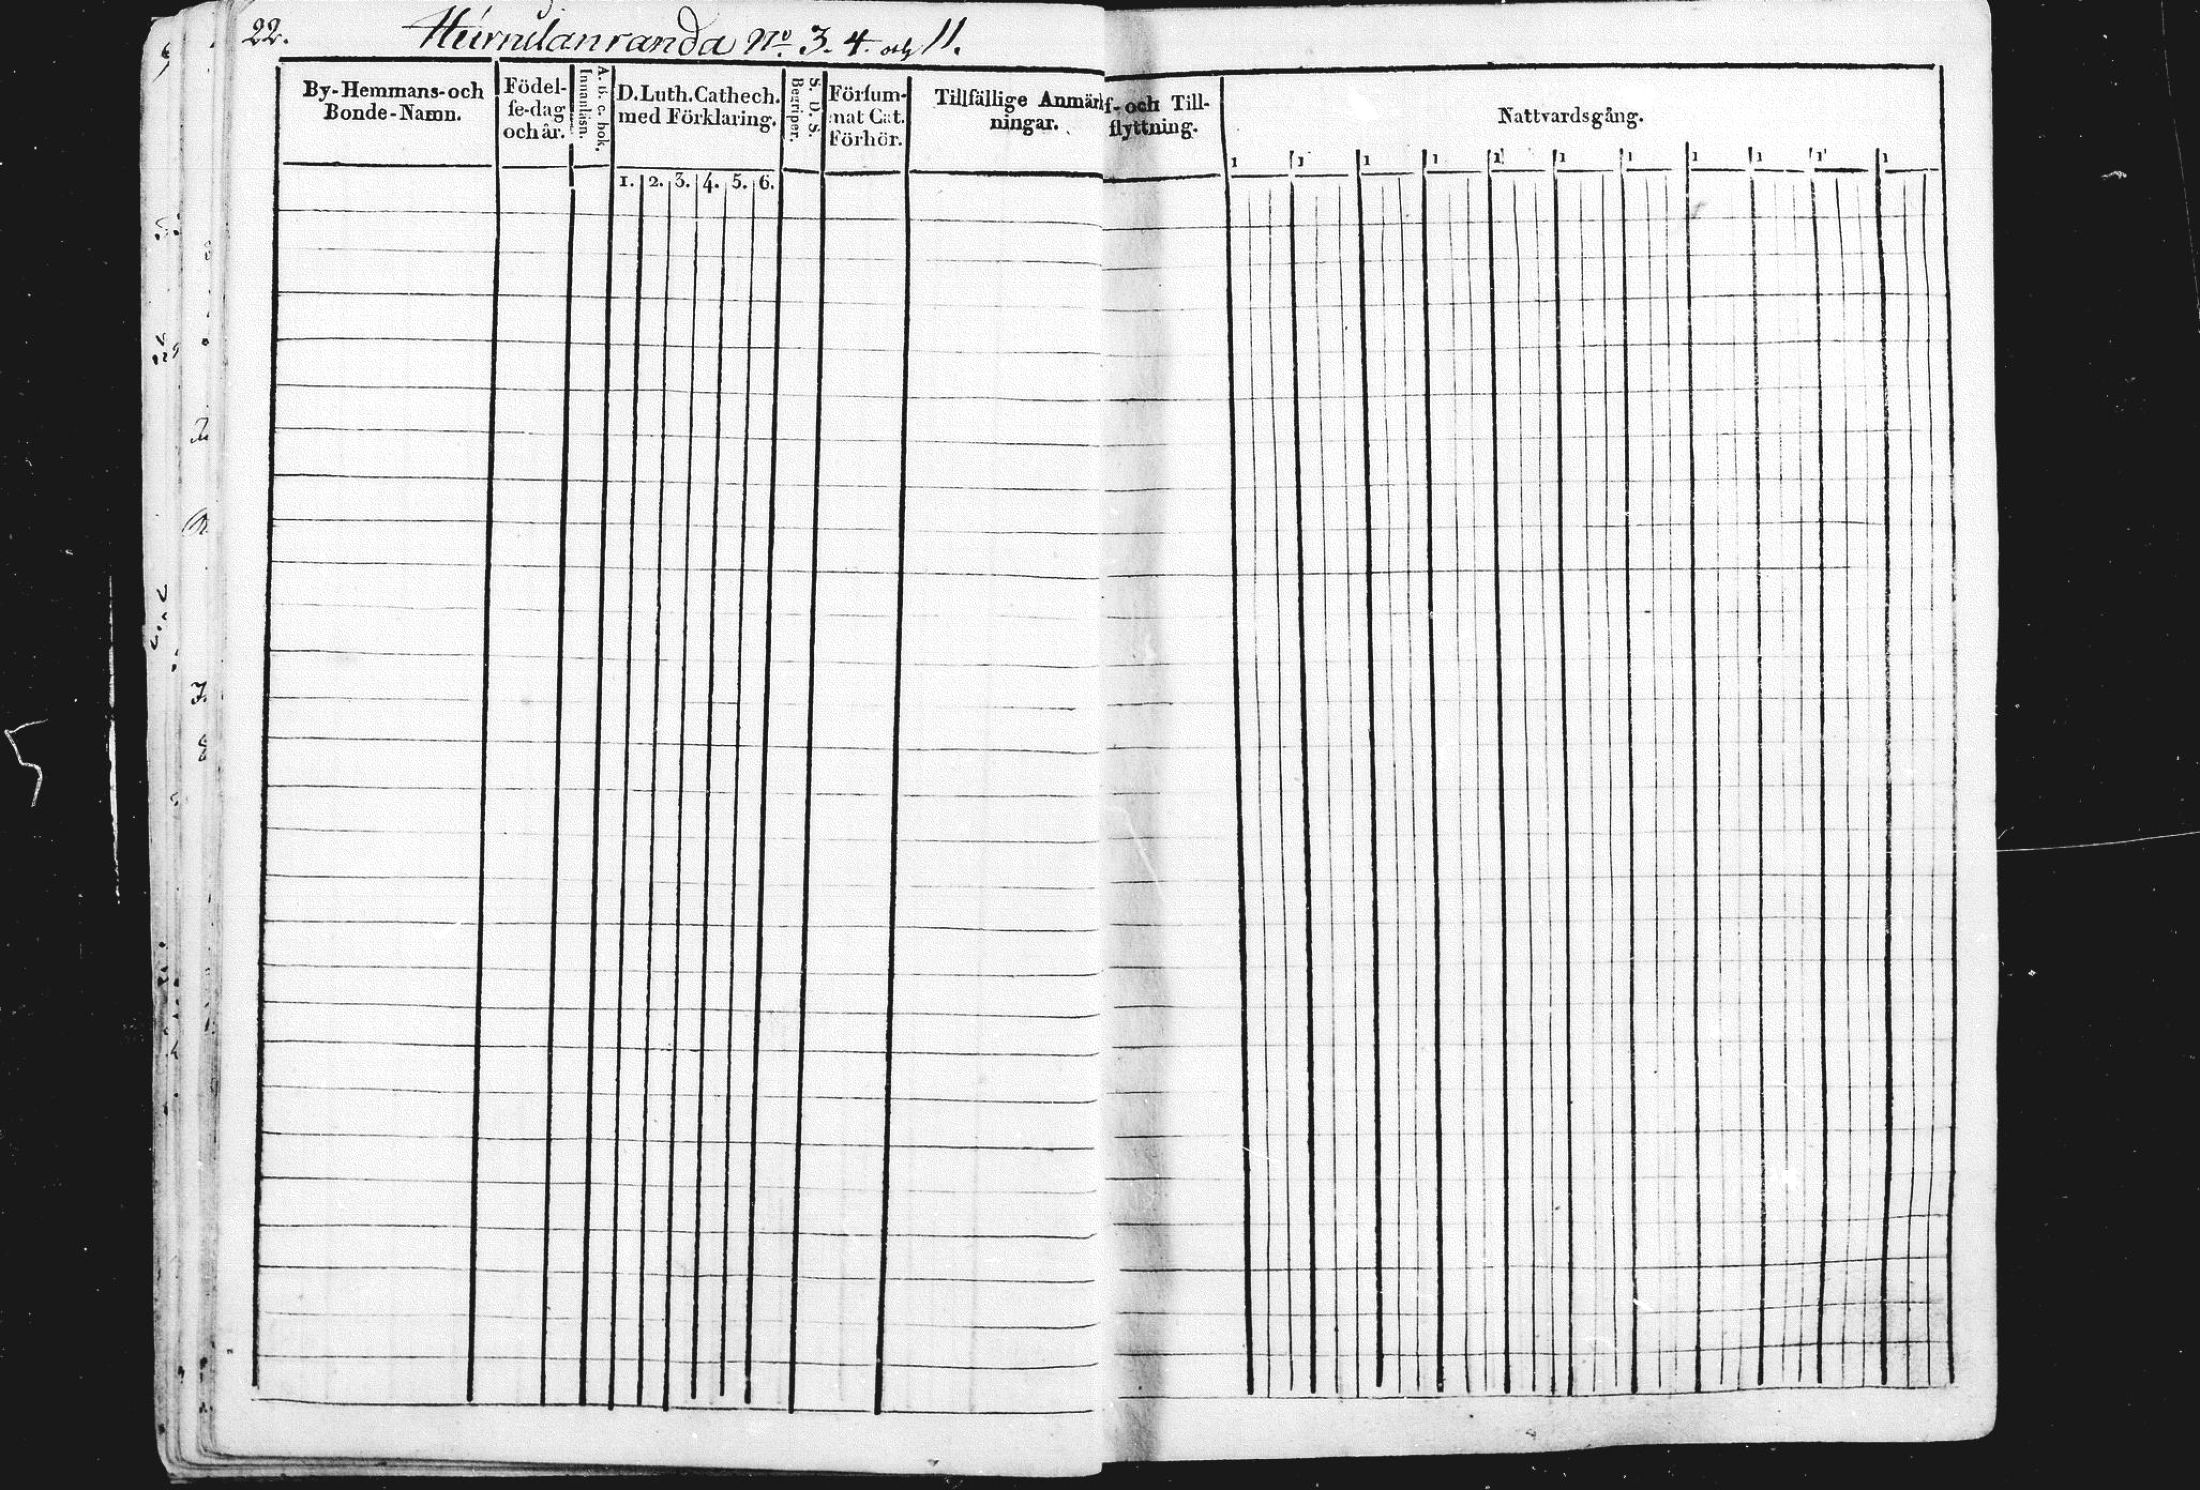 22. Hiirnilanranda No 3. 4. och 11.
By-Hemmans-och
Bonde-Namn.
Födel-
se-dag
och år.
A. b. c. bok.
Innanläsn.
D. Luth. Cathech.
med Förklaring.
1. 2. 3. 4. 5. 6.
S. D. S.
Begriper.
Försum-
mat Cat.
Förhör.
Tillfällige Anmärk
ningar.
f- och Till-
flyttning.
Nattvardsgång.
1 1 1 1 1 1 1 1 1 1 1